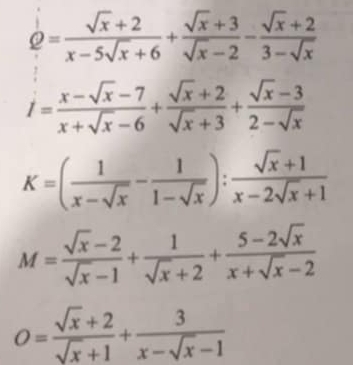 Q = \frac{\sqrt{x}+2}{x-5\sqrt{x}+6} + \frac{\sqrt{x}+3}{\sqrt{x}-2} - \frac{\sqrt{x}+2}{3-\sqrt{x}}
I = \frac{x-\sqrt{x}-7}{x+\sqrt{x}-6} + \frac{\sqrt{x}+2}{\sqrt{x}+3} + \frac{\sqrt{x}-3}{2-\sqrt{x}}
K = \left(\frac{1}{x-\sqrt{x}} - \frac{1}{1-\sqrt{x}}\right) : \frac{\sqrt{x}+1}{x-2\sqrt{x}+1}
M = \frac{\sqrt{x}-2}{\sqrt{x}-1} + \frac{1}{\sqrt{x}+2} + \frac{5-2\sqrt{x}}{x+\sqrt{x}-2}
O = \frac{\sqrt{x}+2}{\sqrt{x}+1} + \frac{3}{x-\sqrt{x}-1}